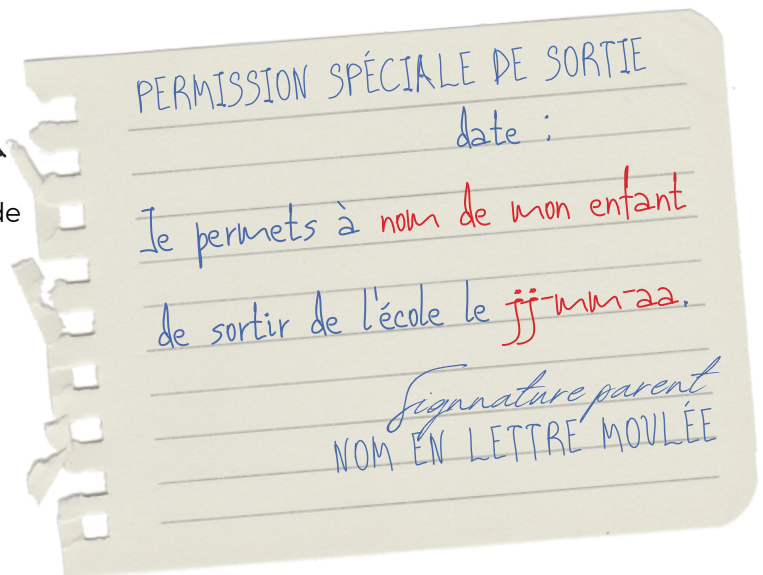 PERMISSION SPÉCIALE DE SORTIE
date :
de
Je permets à nom de mon enfant
de sortir de l'école le jj-mm-aa.
Signnature parent
NOM EN LETTRE MOULÉE